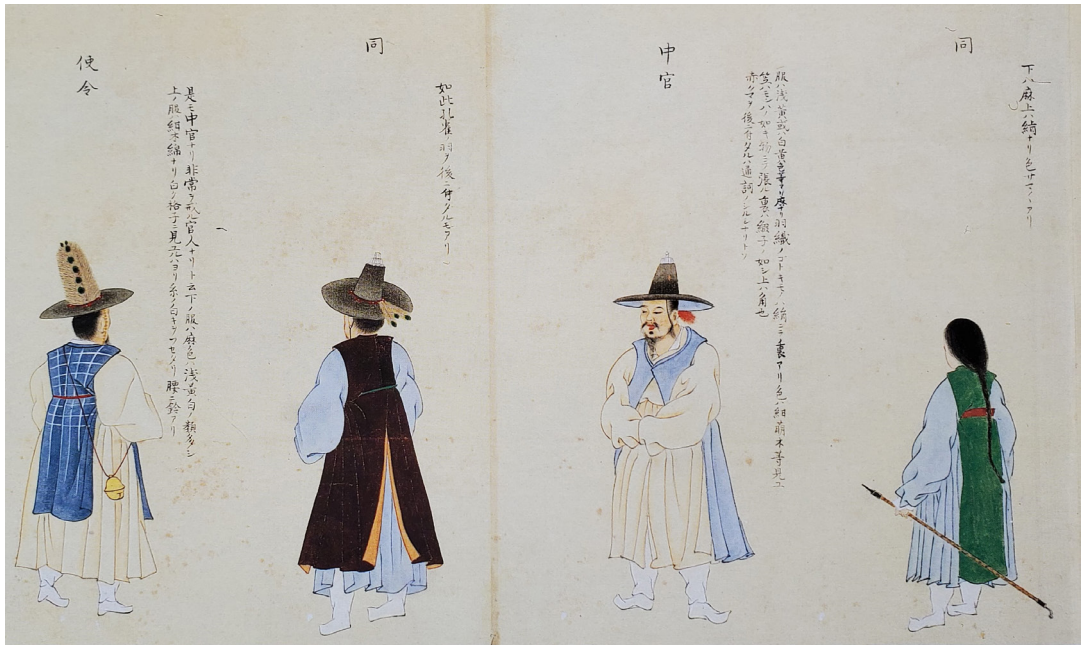 同
下ハ麻上ハ絹ナリ色サマ〱アリ
中官
服ハ浅黄或ハ白黄色 麻ナリ羽織ノゴトキモノハ絹ニテ裏アリ色ハ紺萌木等見ユ
笠ハ 如キ物ニテ張ル裏ハ絹子ノ如シ上ハ角也
赤 後ニ付タルハ通詞ノシルシナリトゾ
同
如此孔雀羽ヲ後ニ付タルモアリ
使令
是モ中官ナリ非常ヲ戒ル官人ナリト云下ノ服ハ麻色ハ浅黄白ノ類多シ
上ノ服紺木綿ナリ白ク格子ニ見ユルハヨリ糸ノ白キヲフセタリ腰ニ鈴アリ